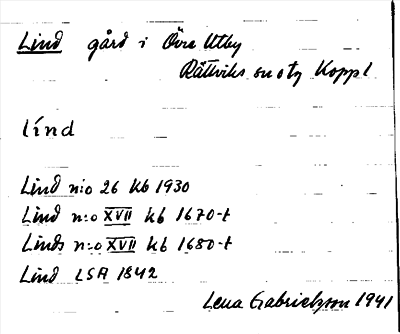 Lind gård i Övre Utby
Rättviks sn o tg Koppl
línd
Lind n:o 26 kb 1930
Lind n:o XVII kb 1670-t
Linds n:o XVII kb 1680-t
Lind LSA 1842
Lena Gabrielsson 1941